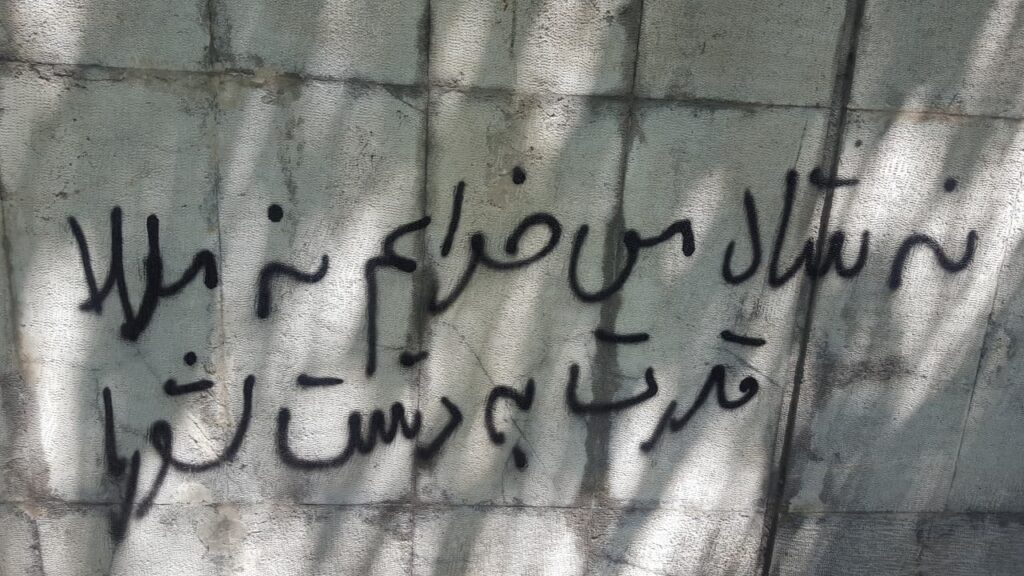 نه شاه می خوایم نه ملا
قدرت به دست شورا